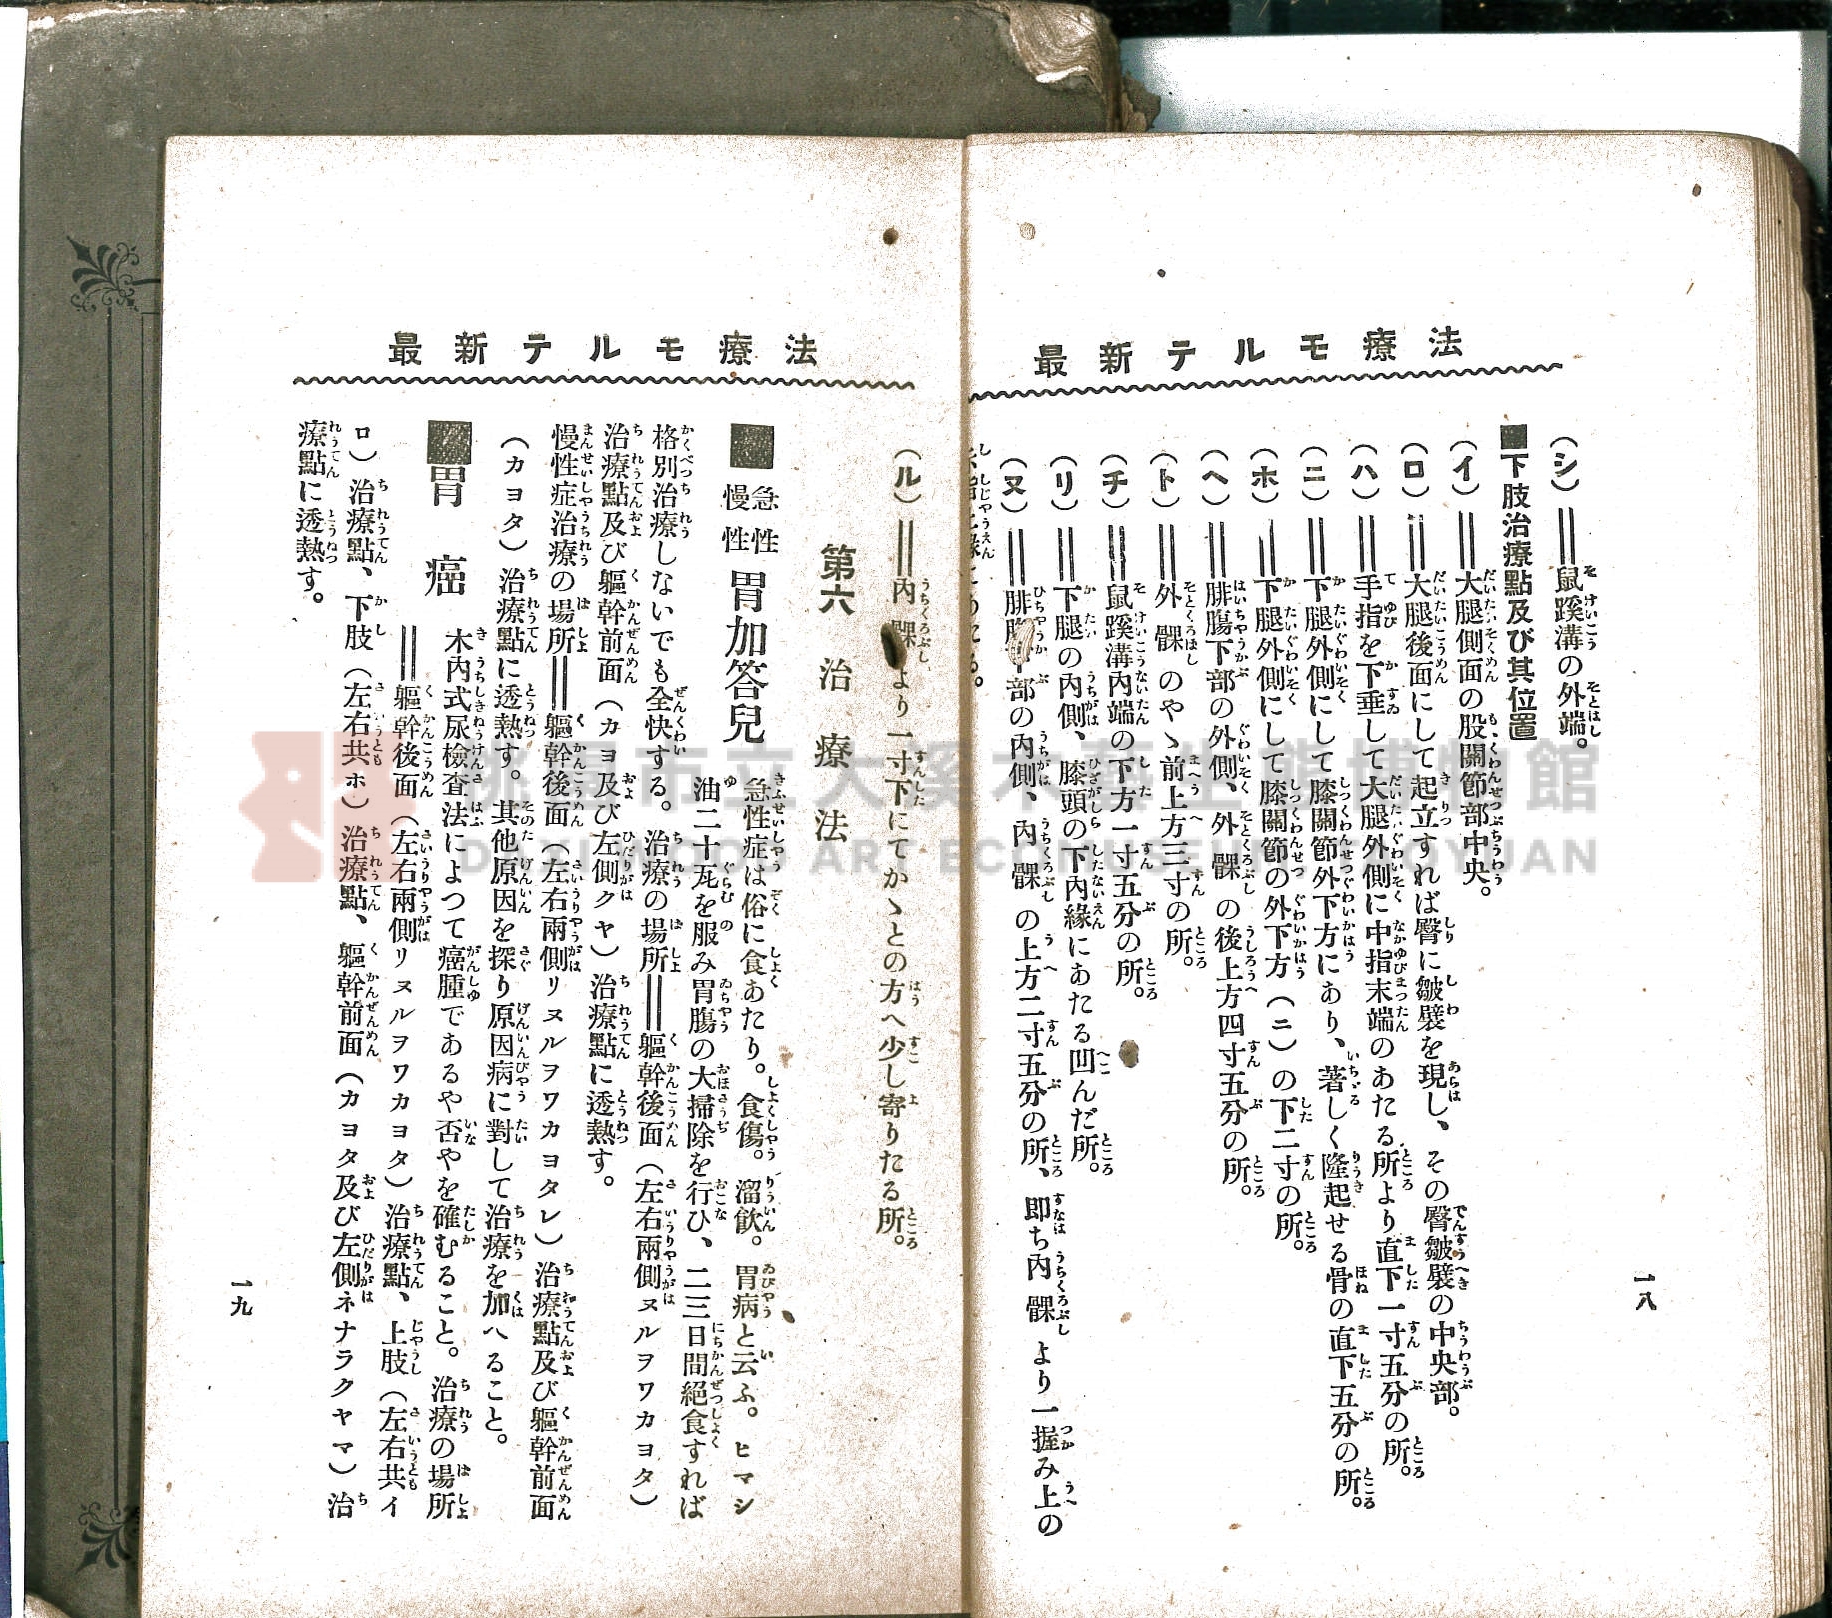 最新テルモ療法
(シ)＝鼠蹊溝の外端。
■下肢治療點及び其位置
(イ)＝大腿側面の股關節部中央。
(ロ)＝大腿後面にして起立すれば臀に皺襞を現し、その臀皺襞の中央部。
(ハ)＝手指を下垂して大腿外側に中指末端のあたる所より直下一寸五分の所。
(ニ)＝下腿外側にして膝關節外下方にあり、著しく隆起せる骨の直下五分の所。
(ホ)＝下腿外側にして膝關節の外下方(ニ)の下二寸の所。
(ヘ)＝腓膓下部の外側、外髁の後上方四寸五分の所。
(ト)＝外髁のやゝ前上方三寸の所。
(チ)＝鼠蹊溝內端の下方一寸五分の所。
(リ)＝下腿の內側、膝頭の下內緣にあたる凹んだ所。
(ヌ)＝腓膓部の內側、內髁の上方二寸五分の所、即ち內髁より一握み上の
一八
最新テルモ療法
(ル)＝內髁より一寸下にてかゝとの方へ少し寄りたる所。
第六 治療法
■急性慢性胃加答兒 急性症は俗に食あたり。食傷。溜飮。胃病と云ふ。ヒマシ
油二十瓦を服み胃膓の大掃除を行ひ、二三日間絕食すれば
格別治療しないでも全快する。治療の場所＝軀幹後面(左右兩側ヌルヲワカヨタ)
治療點及び軀幹前面(カヨ及び左側クヤ)治療點に透熱す。
慢性症治療の場所＝軀幹後面(左右兩側リヌルヲワカヨタレ)治療點及び軀幹前面
(カヨタ)治療點に透熱す。其他原因を探り原因病に對して治療を加へること。
■胃癌 木內式尿檢査法によつて癌腫であるや否やを確むること。治療の場所
＝軀幹後面(左右兩側リヌルヲワカヨタ)治療點、上肢(左右共イ
ロ)治療點、下肢(左右共ホ)治療點、軀幹前面(カヨタ及び左側ネナラクヤマ)治
療點に透熱す。
一九
桃園市立大溪木藝生態博物館
DAXI WOOD ART ECOMUSEUM, TAOYUAN